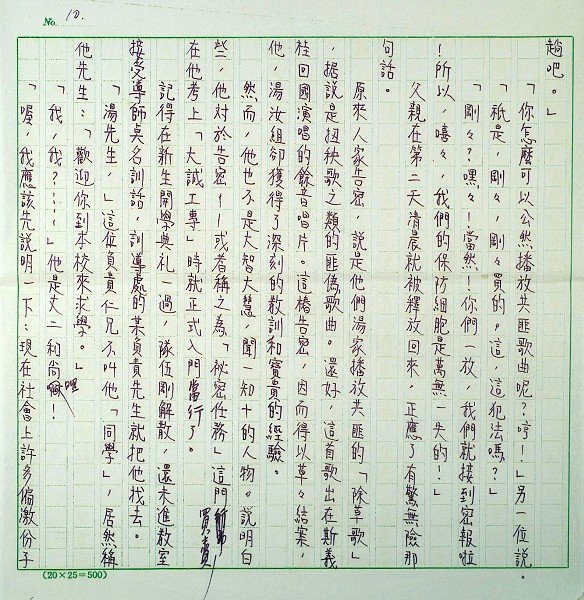 No. 10.
趟吧。」
「你怎麼可以公然播放共匪歌曲呢？哼！」另一位說。
「祇是，剛々，剛々買的。這，這犯法嗎？」
「剛々？嘿々！當然！你們一放，我們就接到密報啦
！所以，嘻々，我們的保防細胞是萬無一失的！」
父親在第二天清晨就被釋放回來，正應了有驚無險那
句話。
原來人家告密，說是他們湯家播放共匪的「除草歌」
，据說是扭秧歌之類的匪偽歌曲。還好，這首歌出在斯義
桂回國演唱的餘音唱片。這樁告密，因而得以草々結案，
他，湯汝組卻獲得了深刻的教訓和寶貴的經驗。
然而，他也不是大智大慧，聞一知十的人物。說明白
些，他對於告密——或者稱之為「祕密任務」這門買賣，
在他考上「大誠工專」時就正式入門當行了。
記得在新生開學典礼一過，隊伍剛解散，還未進教室
接受導師莫名訓話，訓導處的某負責先生就把他找去。
「湯先生，」這位負責仁兄不叫他「同學」，居然稱
他先生：「歡迎你到本校來求學。」
「我，我？……」他是丈二和尚哩！
「喔，我應該先說明一下：現在社會上許多偏激份子
(20×25=500)